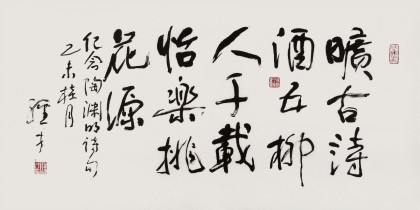 曠古詩
酒五柳
人千載
怡樂桃
花源
纪念陶渊明诗句
乙未桂月